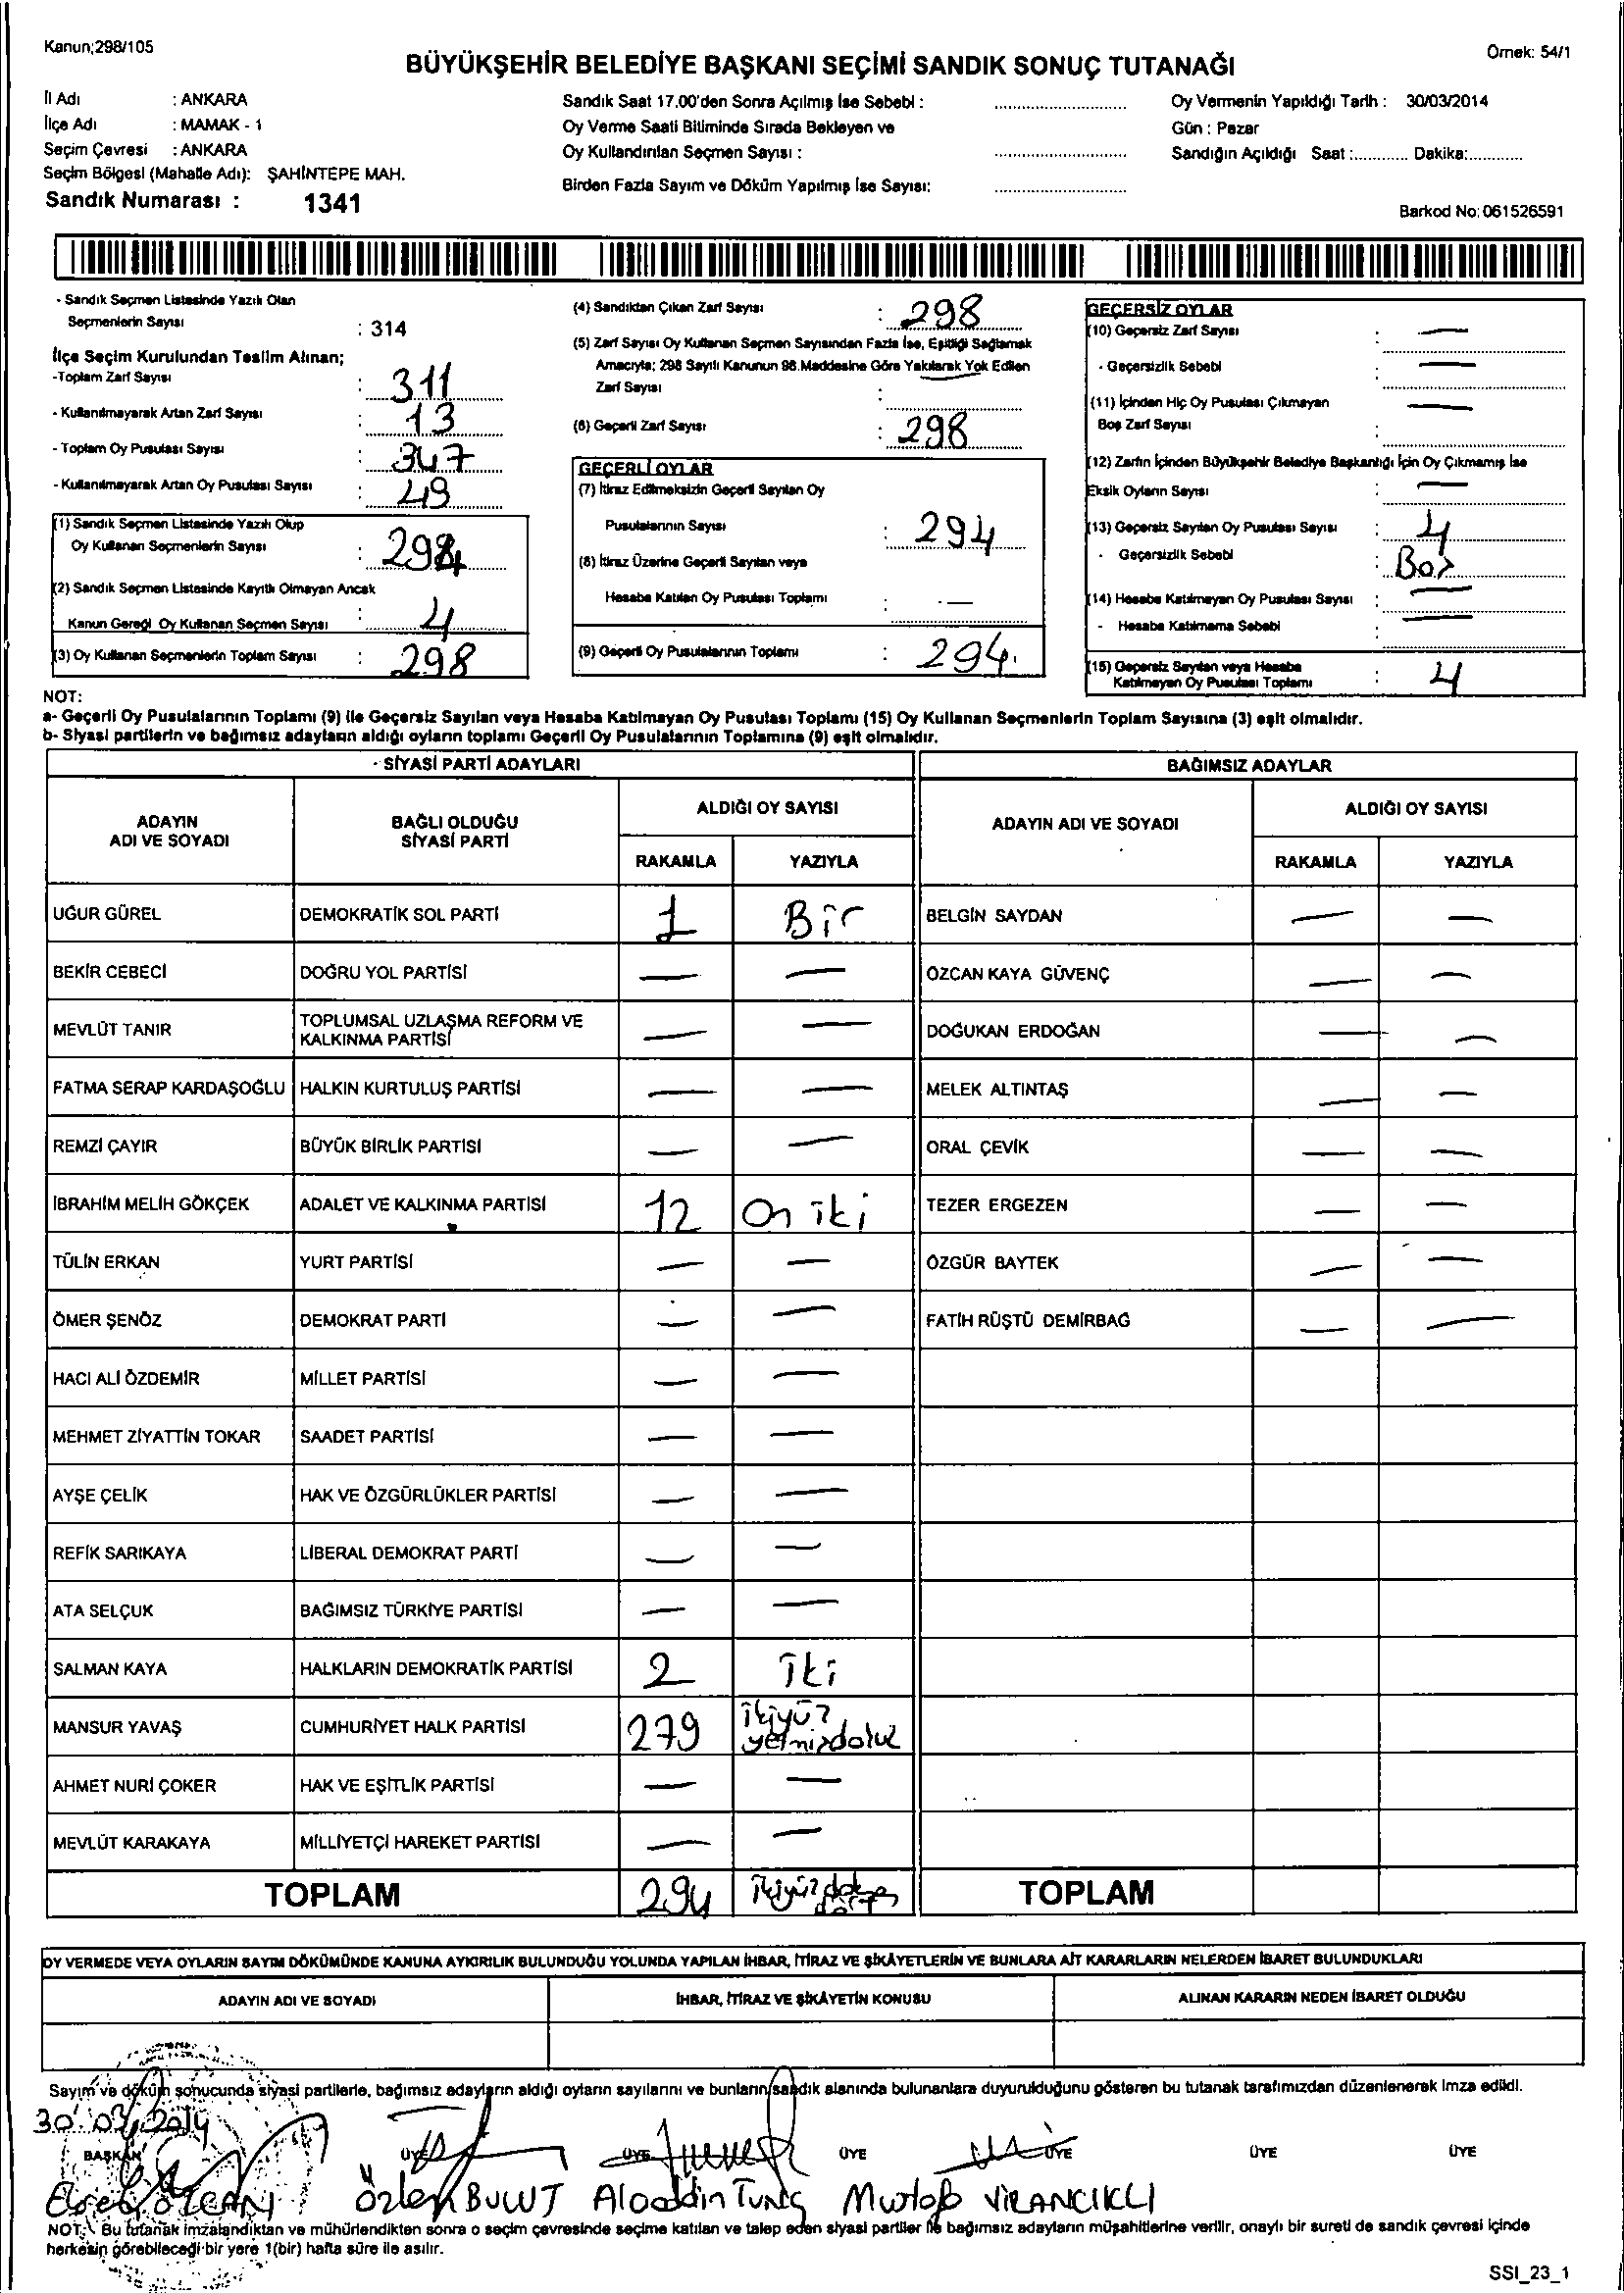 Kanun;298/105
Örnek: 54/1
BÜYÜKŞEHİR BELEDİYE BAŞKANI SEÇİMİ SANDIK SONUÇ TUTANAĞI
İl Adı : ANKARA
İlçe Adı : MAMAK - 1
Seçim Çevresi : ANKARA
Seçim Bölgesi (Mahalle Adı): ŞAHİNTEPE MAH.
Sandık Numarası : 1341
Sandık Saat 17.00'den Sonra Açılmış İse Sebebi :
Oy Verme Saati Bitiminde Sırada Bekleyen ve
Oy Kullandırılan Seçmen Sayısı :
Birden Fazla Sayım ve Döküm Yapılmış İse Sayısı:
Oy Vermenin Yapıldığı Tarih : 30/03/2014
Gün : Pazar
Sandığın Açıldığı Saat :............ Dakika:............
Barkod No: 061526591
- Sandık Seçmen Listesinde Yazılı Olan
Seçmenlerin Sayısı : 314
İlçe Seçim Kurulundan Teslim Alınan;
-Toplam Zarf Sayısı : 311
- Kullanılmayarak Artan Zarf Sayısı : 13
- Toplam Oy Pusulası Sayısı : 347
- Kullanılmayarak Artan Oy Pusulası Sayısı : 49
(1) Sandık Seçmen Listesinde Yazılı Olup
Oy Kullanan Seçmenlerin Sayısı : 294
(2) Sandık Seçmen Listesinde Kayıtlı Olmayan Ancak
Kanun Gereği Oy Kullanan Seçmen Sayısı : 4
(3) Oy Kullanan Seçmenlerin Toplam Sayısı : 298
(4) Sandıktan Çıkan Zarf Sayısı : 298
(5) Zarf Sayısı Oy Kullanan Seçmen Sayısından Fazla İse, Eşitliği Sağlamak
Amacıyla; 298 Sayılı Kanunun 98.Maddesine Göre Yakılarak Yok Edilen
Zarf Sayısı : —
(6) Geçerli Zarf Sayısı : 298
GEÇERLİ OYLAR
(7) İtiraz Edilmeksizin Geçerli Sayılan Oy
Pusulalarının Sayısı : 294
(8) İtiraz Üzerine Geçerli Sayılan veya
Hesaba Katılan Oy Pusulası Toplamı : —
(9) Geçerli Oy Pusulalarının Toplamı : 294
GEÇERSİZ OYLAR
(10) Geçersiz Zarf Sayısı : —
- Geçersizlik Sebebi : —
(11) İçinden Hiç Oy Pusulası Çıkmayan —
Boş Zarf Sayısı :
(12) Zarfın İçinden Büyükşehir Belediye Başkanlığı İçin Oy Çıkmamış İse
Eksik Oyların Sayısı : —
(13) Geçersiz Sayılan Oy Pusulası Sayısı : 4
- Geçersizlik Sebebi : Boş
(14) Hesaba Katılmayan Oy Pusulası Sayısı : —
- Hesaba Katılmama Sebebi : —
(15) Geçersiz Sayılan veya Hesaba
Katılmayan Oy Pusulası Toplamı : 4
NOT:
a- Geçerli Oy Pusulalarının Toplamı (9) ile Geçersiz Sayılan veya Hesaba Katılmayan Oy Pusulası Toplamı (15) Oy Kullanan Seçmenlerin Toplam Sayısına (3) eşit olmalıdır.
b- Siyasi partilerin ve bağımsız adayların aldığı oyların toplamı Geçerli Oy Pusulalarının Toplamına (9) eşit olmalıdır.
SİYASİ PARTİ ADAYLARI
BAĞIMSIZ ADAYLAR
ADAYIN ADI VE SOYADI
BAĞLI OLDUĞU SİYASİ PARTİ
ALDIĞI OY SAYISI
RAKAMLA YAZIYLA
ADAYIN ADI VE SOYADI
ALDIĞI OY SAYISI
RAKAMLA YAZIYLA
UĞUR GÜREL DEMOKRATİK SOL PARTİ 1 Bir BELGİN SAYDAN — —
BEKİR CEBECİ DOĞRU YOL PARTİSİ — — ÖZCAN KAYA GÜVENÇ — —
MEVLÜT TANIR TOPLUMSAL UZLAŞMA REFORM VE KALKINMA PARTİSİ — — DOĞUKAN ERDOĞAN — —
FATMA SERAP KARDAŞOĞLU HALKIN KURTULUŞ PARTİSİ — — MELEK ALTINTAŞ — —
REMZİ ÇAYIR BÜYÜK BİRLİK PARTİSİ — — ORAL ÇEVİK — —
İBRAHİM MELİH GÖKÇEK ADALET VE KALKINMA PARTİSİ 12 On iki TEZER ERGEZEN — —
TÜLİN ERKAN YURT PARTİSİ — — ÖZGÜR BAYTEK — —
ÖMER ŞENÖZ DEMOKRAT PARTİ — — FATİH RÜŞTÜ DEMİRBAĞ — —
HACI ALİ ÖZDEMİR MİLLET PARTİSİ — —
MEHMET ZİYATTİN TOKAR SAADET PARTİSİ — —
AYŞE ÇELİK HAK VE ÖZGÜRLÜKLER PARTİSİ — —
REFİK SARIKAYA LİBERAL DEMOKRAT PARTİ — —
ATA SELÇUK BAĞIMSIZ TÜRKİYE PARTİSİ — —
SALMAN KAYA HALKLARIN DEMOKRATİK PARTİSİ 2 iki
MANSUR YAVAŞ CUMHURİYET HALK PARTİSİ 279 ikiyüz yetmişdokuz
AHMET NURİ ÇOKER HAK VE EŞİTLİK PARTİSİ — —
MEVLÜT KARAKAYA MİLLİYETÇİ HAREKET PARTİSİ — —
TOPLAM 294 ikiyüz TOPLAM
OY VERMEDE VEYA OYLARIN SAYIM DÖKÜMÜNDE KANUNA AYKIRILIK BULUNDUĞU YOLUNDA YAPILAN İHBAR, İTİRAZ VE ŞİKÂYETLERİN VE BUNLARA AİT KARARLARIN NELERDEN İBARET BULUNDUKLARI
ADAYIN ADI VE SOYADI İHBAR, İTİRAZ VE ŞİKÂYETİN KONUSU ALINAN KARARIN NEDEN İBARET OLDUĞU
Sayım ve döküm sonucunda siyasi partilerle, bağımsız adayların aldığı oyların sayılarını ve bunların sandık alanında bulunanlara duyurulduğunu gösteren bu tutanak tarafımızdan düzenlenerek imza edildi.
30.03.2014
BAŞKAN ÜYE ÜYE ÜYE ÜYE ÜYE ÜYE
ÖZCAN Özlem BULUT Alaaddin Tunç Mustafa VİRANCIKLI
NOT: Bu tutanak imzalandıktan ve mühürlendikten sonra o seçim çevresinde seçime katılan ve talep eden siyasi partiler ile bağımsız adayların müşahitlerine verilir, onaylı bir sureti de sandık çevresi içinde
herkesin görebileceği bir yere 1(bir) hafta süre ile asılır.
SSI_23_1